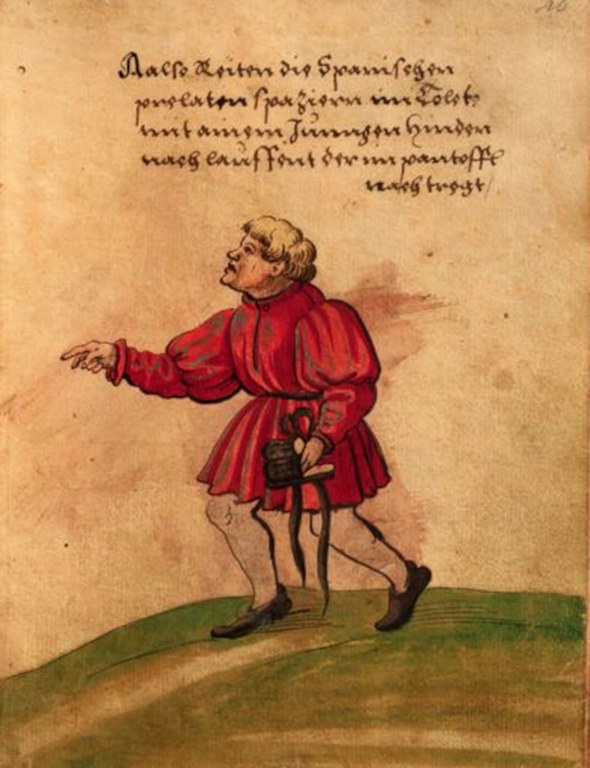 Aalso Reiten die Spanischen
prelaten spaziern im Tolet
mit ainem Jungen hinden
nach lauffent der im pantoffl
nach tregt